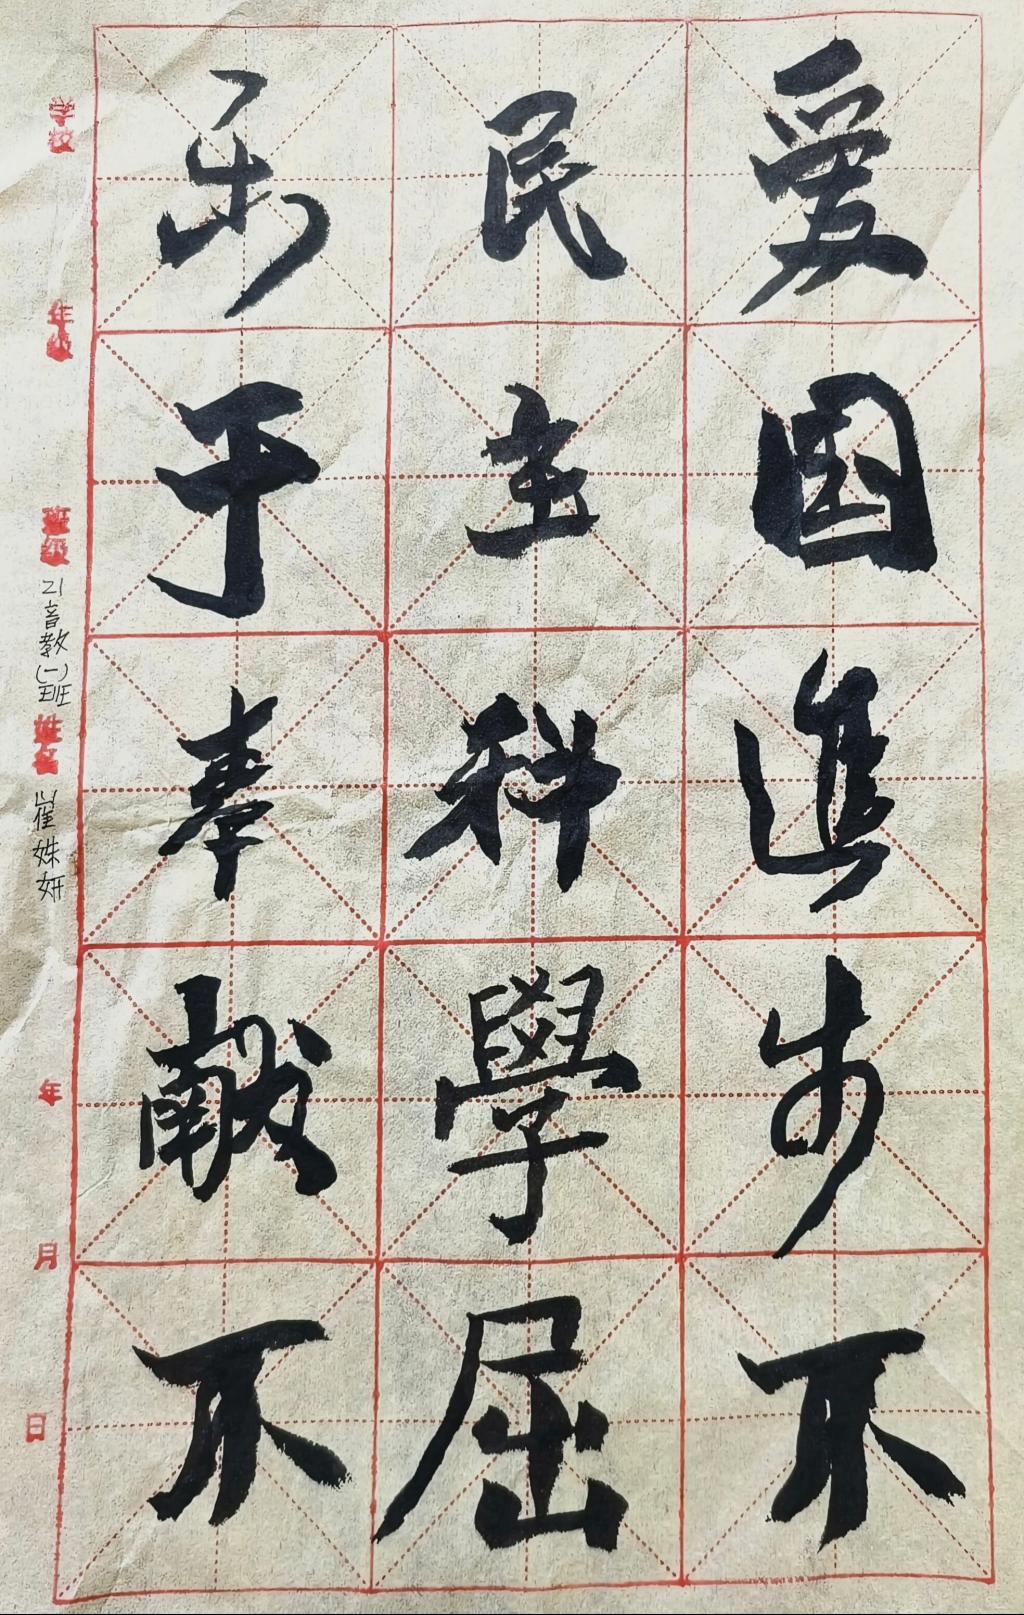 爱国進步不
民主科學屈
乐于奉献不
学校 年级 班级 21音教(一)班 姓名 崔姝妍 年 月 日